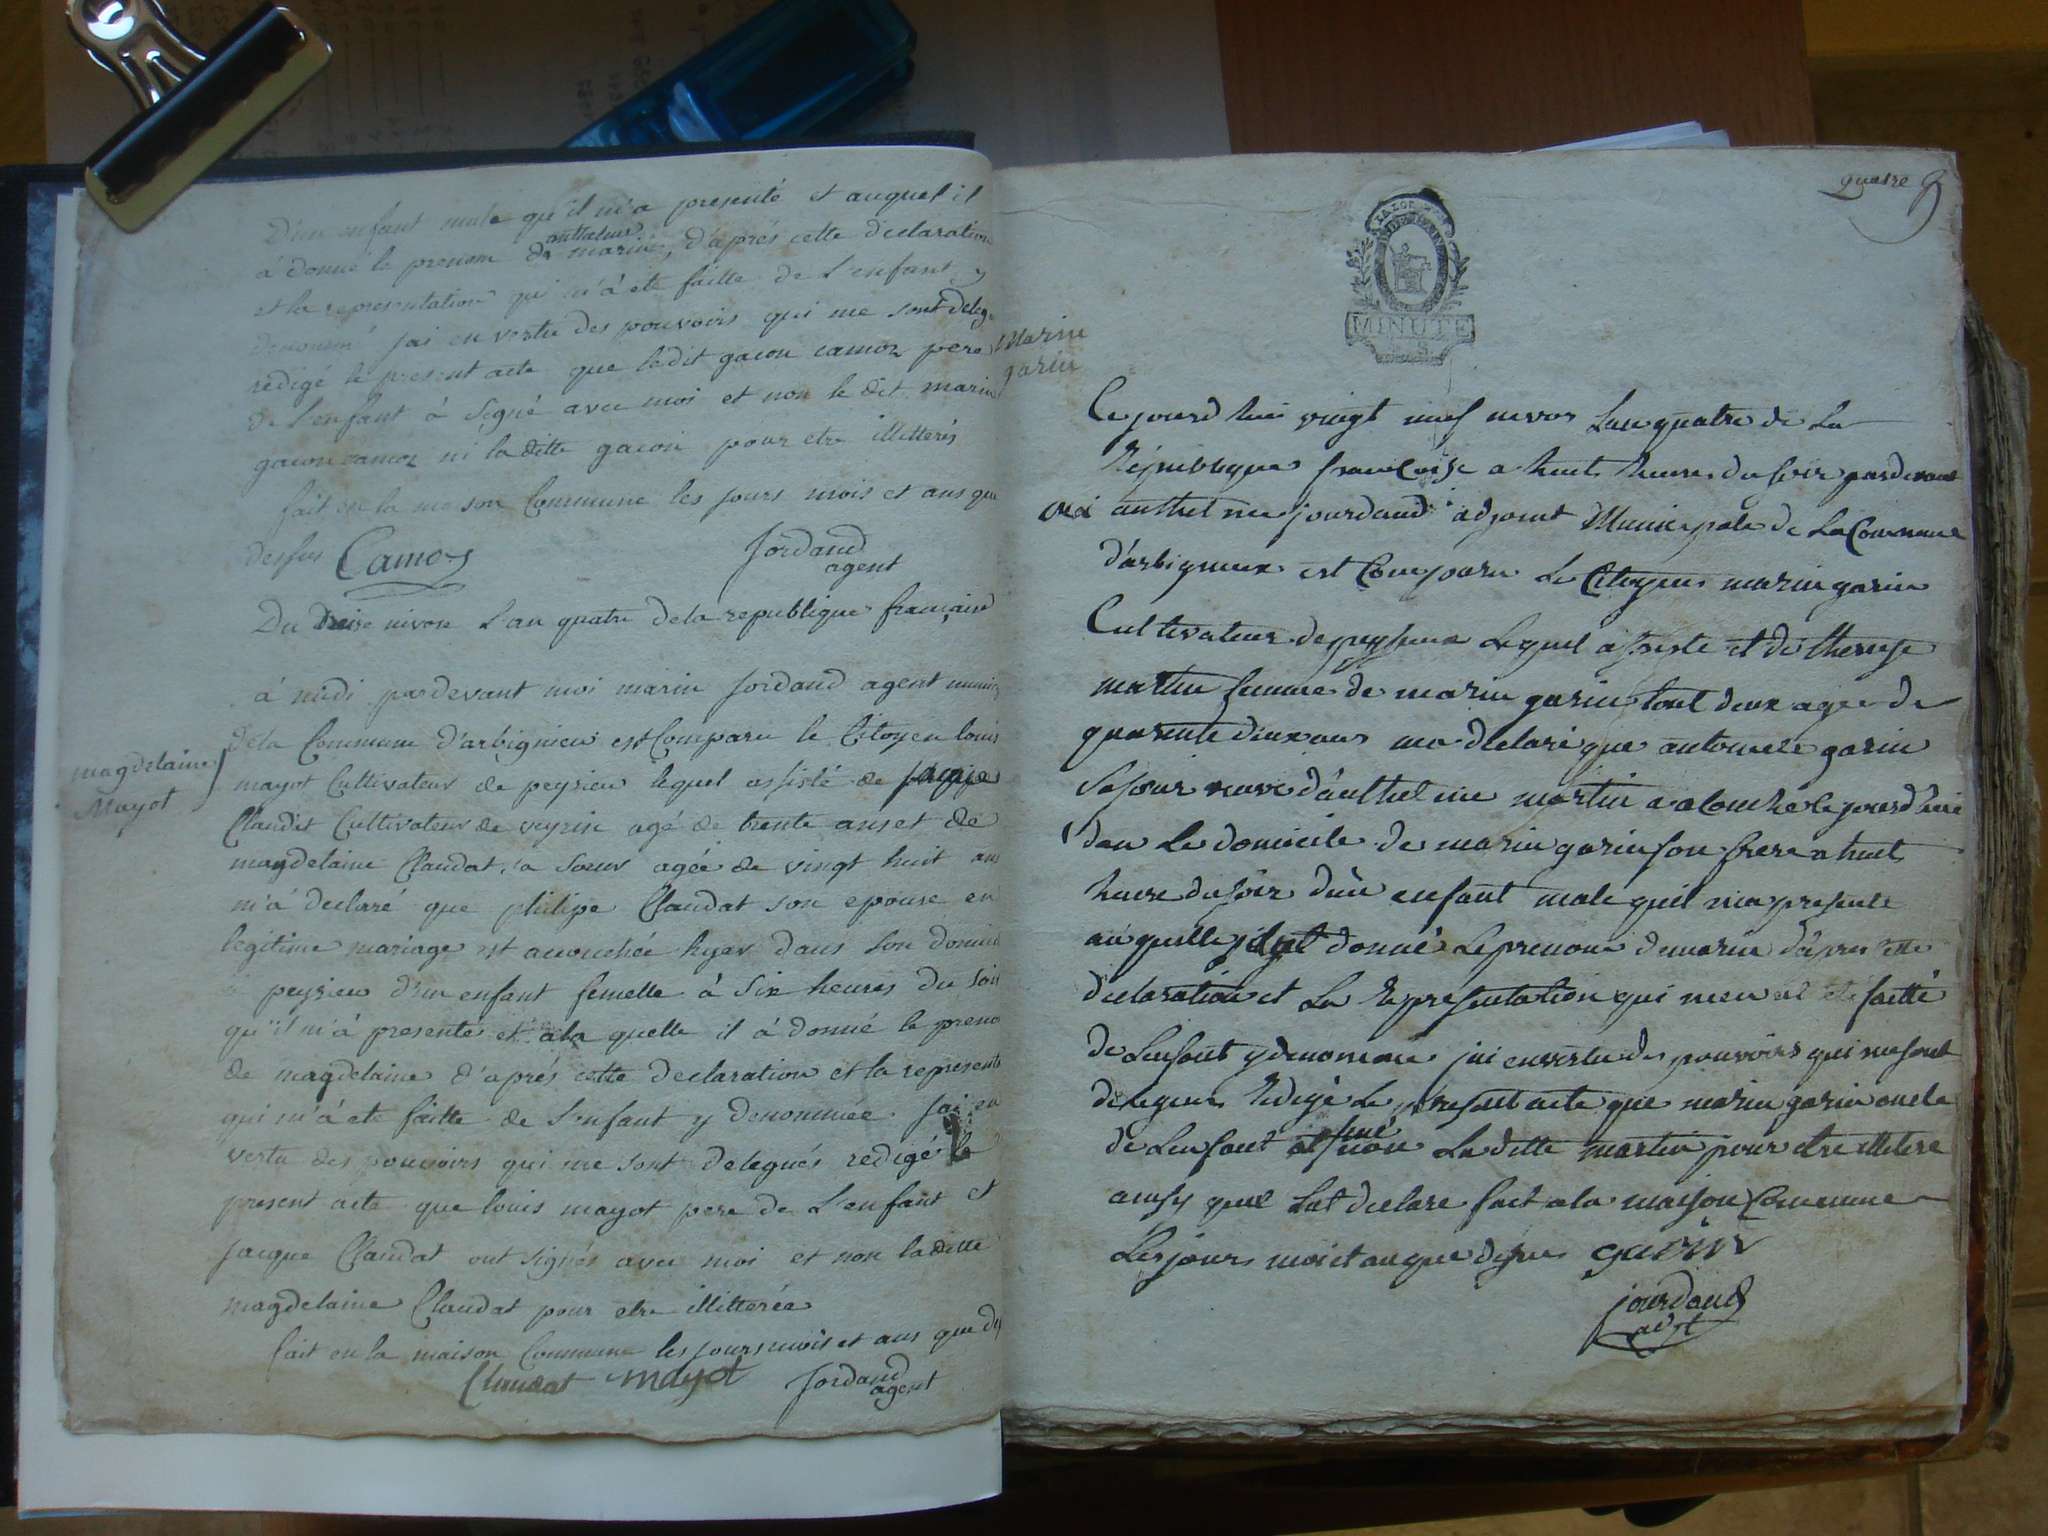 D'un enfant male qu'il m'a presenté et auquel il
anthelme
à donné le prenom de marin, d'aprés cette declaration
et la representation qui m'à eté faitte de l'enfant y
denommé jai en vertu des pouvoirs qui me sont deleg
redigé le present acte que ledit gacon camoz pere
de l'enfant à signé avec moi et non le dit marin
gacon camoz ni la ditte gacon pour etre illitterés
fait en la maison Commune les jours mois et ans que
dessus Camoz Jordand
agent
Du treise nivose l'an quatre de la republique française
à midi pardevant moi marin Jordand agent munic
de la Commune d'arbignieu est Comparu le Citoyen louis
magdelaine
Mayot
mayot Cultivateur de peyrieu lequel assisté de jacque
Claudat Cultivateur de agé de trente ans et de
magdelaine Claudat sa soeur agée de vingt huit ans
m'à declaré que philipe Claudat son epouse en
legitime mariage est accouchée hyer dans son domici
à peyrieu d'un enfant femelle à six heures du soir
qu'il m'à presenté et à la quelle il à donné le preno
de magdelaine d'aprés cette declaration et la represent
qui m'à eté faitte de l'enfant y denommée jai en
vertu des pouvoirs qui me sont delegués redigé le
present acte que louis mayot pere de l'enfant et
jacque Claudat ont signés avec moi et non la ditte
magdelaine Claudat pour etre illitterée
fait en la maison Commune les jours mois et ans que des
Claudat mayot Jordand
agent
quatre
LA LOI
MINUTE
Marin
garin
Ce jourd hui vingt neuf nivos lan quatre de La
République francoise a huit heure du soir pardevant
moi anthelme jourdand adjoint Municipale de La Commune
d'arbignieux est Comparu Le Citoyen marin garin
Cultivateur de peyrieux Lequel assiste et de therese
martin femme de marin garin tout deux agee de
quarente deux ans ma declaré que antoinete garin
sa sœur veuve d'anthelme martin a acouché le jourd'huie
dan Le domicile de marin garin son frere a huit
heure du soir d'un enfant male quil ma presente
au quelle il a donné Le prenom de marin d'apres cette
declaration et La representation qui men at eté faitte
de Lenfant y denomme jai en vertu des pouvoirs qui me sont
delegué Redigé Le present acte que marin garin oncle
de Lenfant a siné non La ditte martin pour etre illitere
ainsy quel Lat declare fait a la maison Commune
Les jour mois et an que desus garin
jourdand
adjt